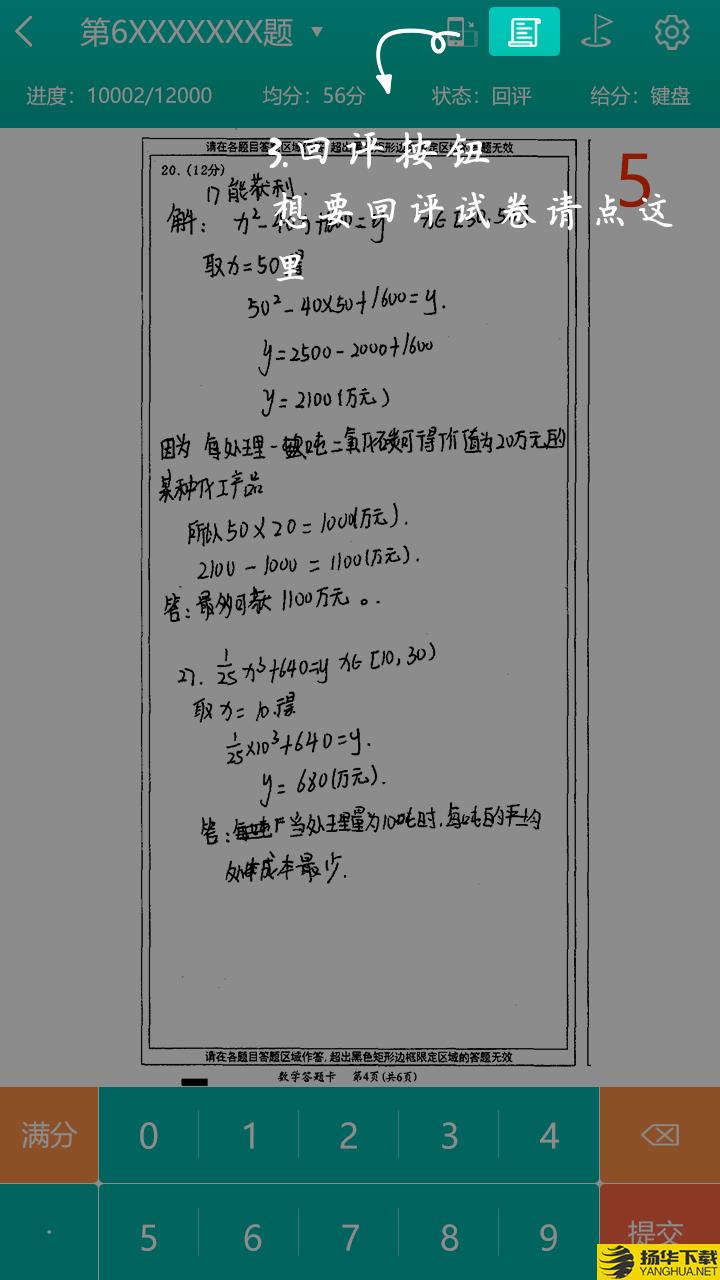 第6XXXXXXX题
进度：10002/12000 均分：56分 状态：回评 给分：键盘
请在各题目答题区域作答，超出黑色矩形边框限定区域的答题无效
3.回评按钮
想要回评试卷请点这
里
5
20.（12分）
1) 能获利.
解：
取x=50得
50²-40×50+1600=y.
y=2500-2000+1600
y=2100(万元)
因为 每处理一吨二氧化碳可得价值为20万元的
某种化工产品
所以50×20=1000(万元).
2100-1000=1100(万元).
答：最多可获 1100万元。
27. 1/25 x³+640=y x∈[10,30)
取x=10.得
1/25×10³+640=y.
y=680(万元).
答： 当处理量为10吨时,每吨的平均
成本最少.
请在各题目答题区域作答，超出黑色矩形边框限定区域的答题无效
数学答题卡 第4页(共6页)
满分 0 1 2 3 4
. 5 6 7 8 9 提交
扬华下载
YANGHUA.NET